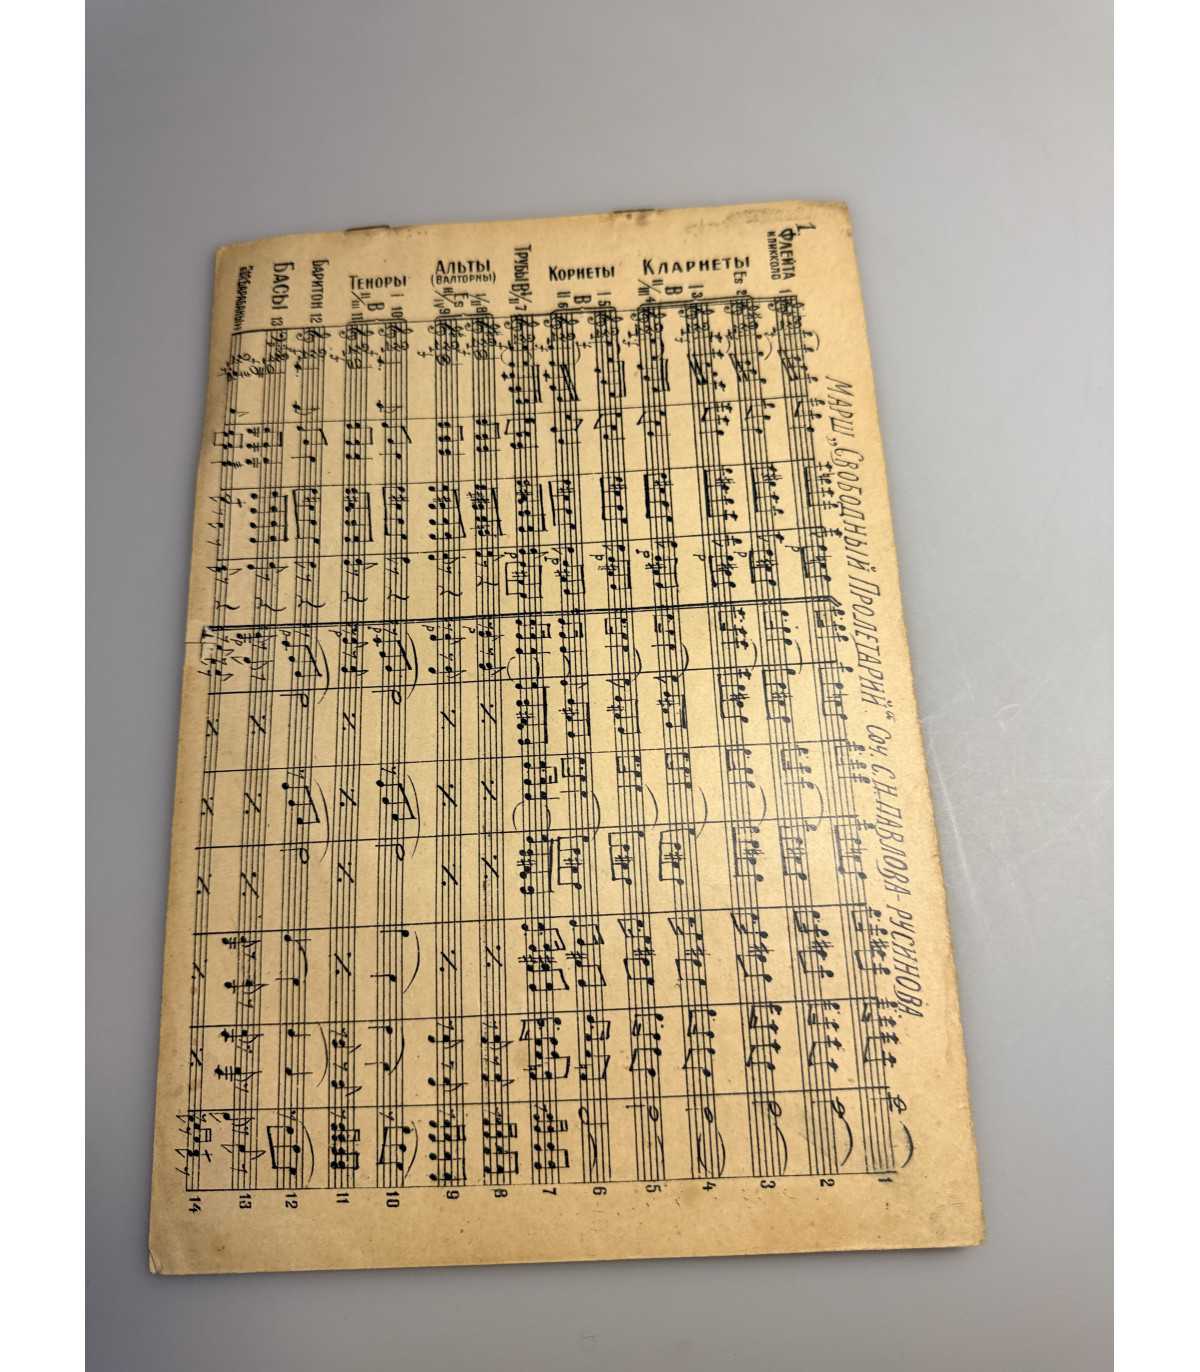 МАРШ „СВОБОДНЫЙ ПРОЛЕТАРИЙ“ Соч. С.Н. ПАВЛОВА-РУСИНОВА.
1
ФЛЕЙТА 1
И ПИККОЛО
Es 2
КЛАРНЕТЫ I 3
B
II/III 4
КОРНЕТЫ I 5
B
II 6
ТРУБЫ B I/II 7
АЛЬТЫ I/II 8
(ВАЛТОРНЫ) Es
III/IV 9
ТЕНОРЫ I 10
B
II/III 11
БАРИТОН 12
БАСЫ 13
1
2
3
4
5
6
7
8
9
10
11
12
13
14